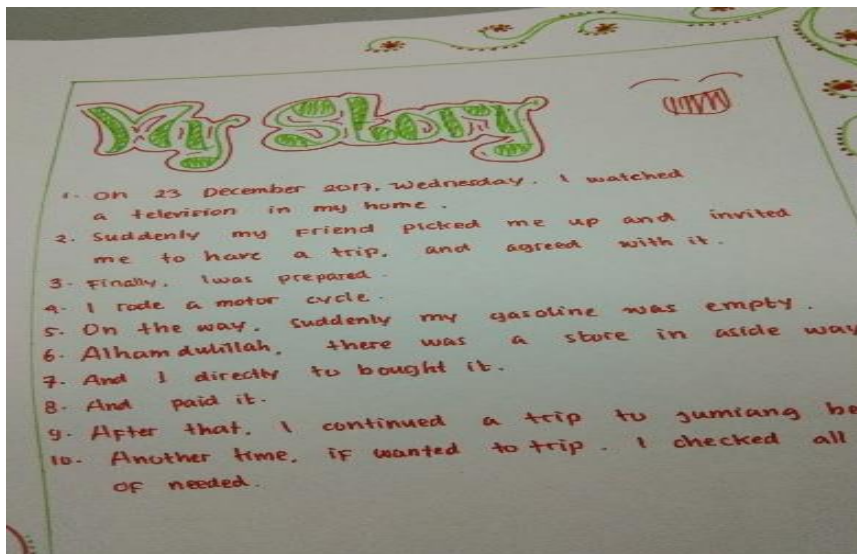 My Story
1. On 23 December 2017, Wednesday. I watched
a television in my home.
2. Suddenly my Friend picked me up and invited
me to have a trip, and agreed with it.
3. Finally, I was prepared.
4. I rode a motor cycle.
5. On the way, suddenly my gasoline was empty.
6. Alhamdulillah, there was a store in aside way
7. And I directly to bought it.
8. And paid it.
9. After that, I continued a trip to Jumiang be
10. Another time, if wanted to trip. I checked all
of needed.